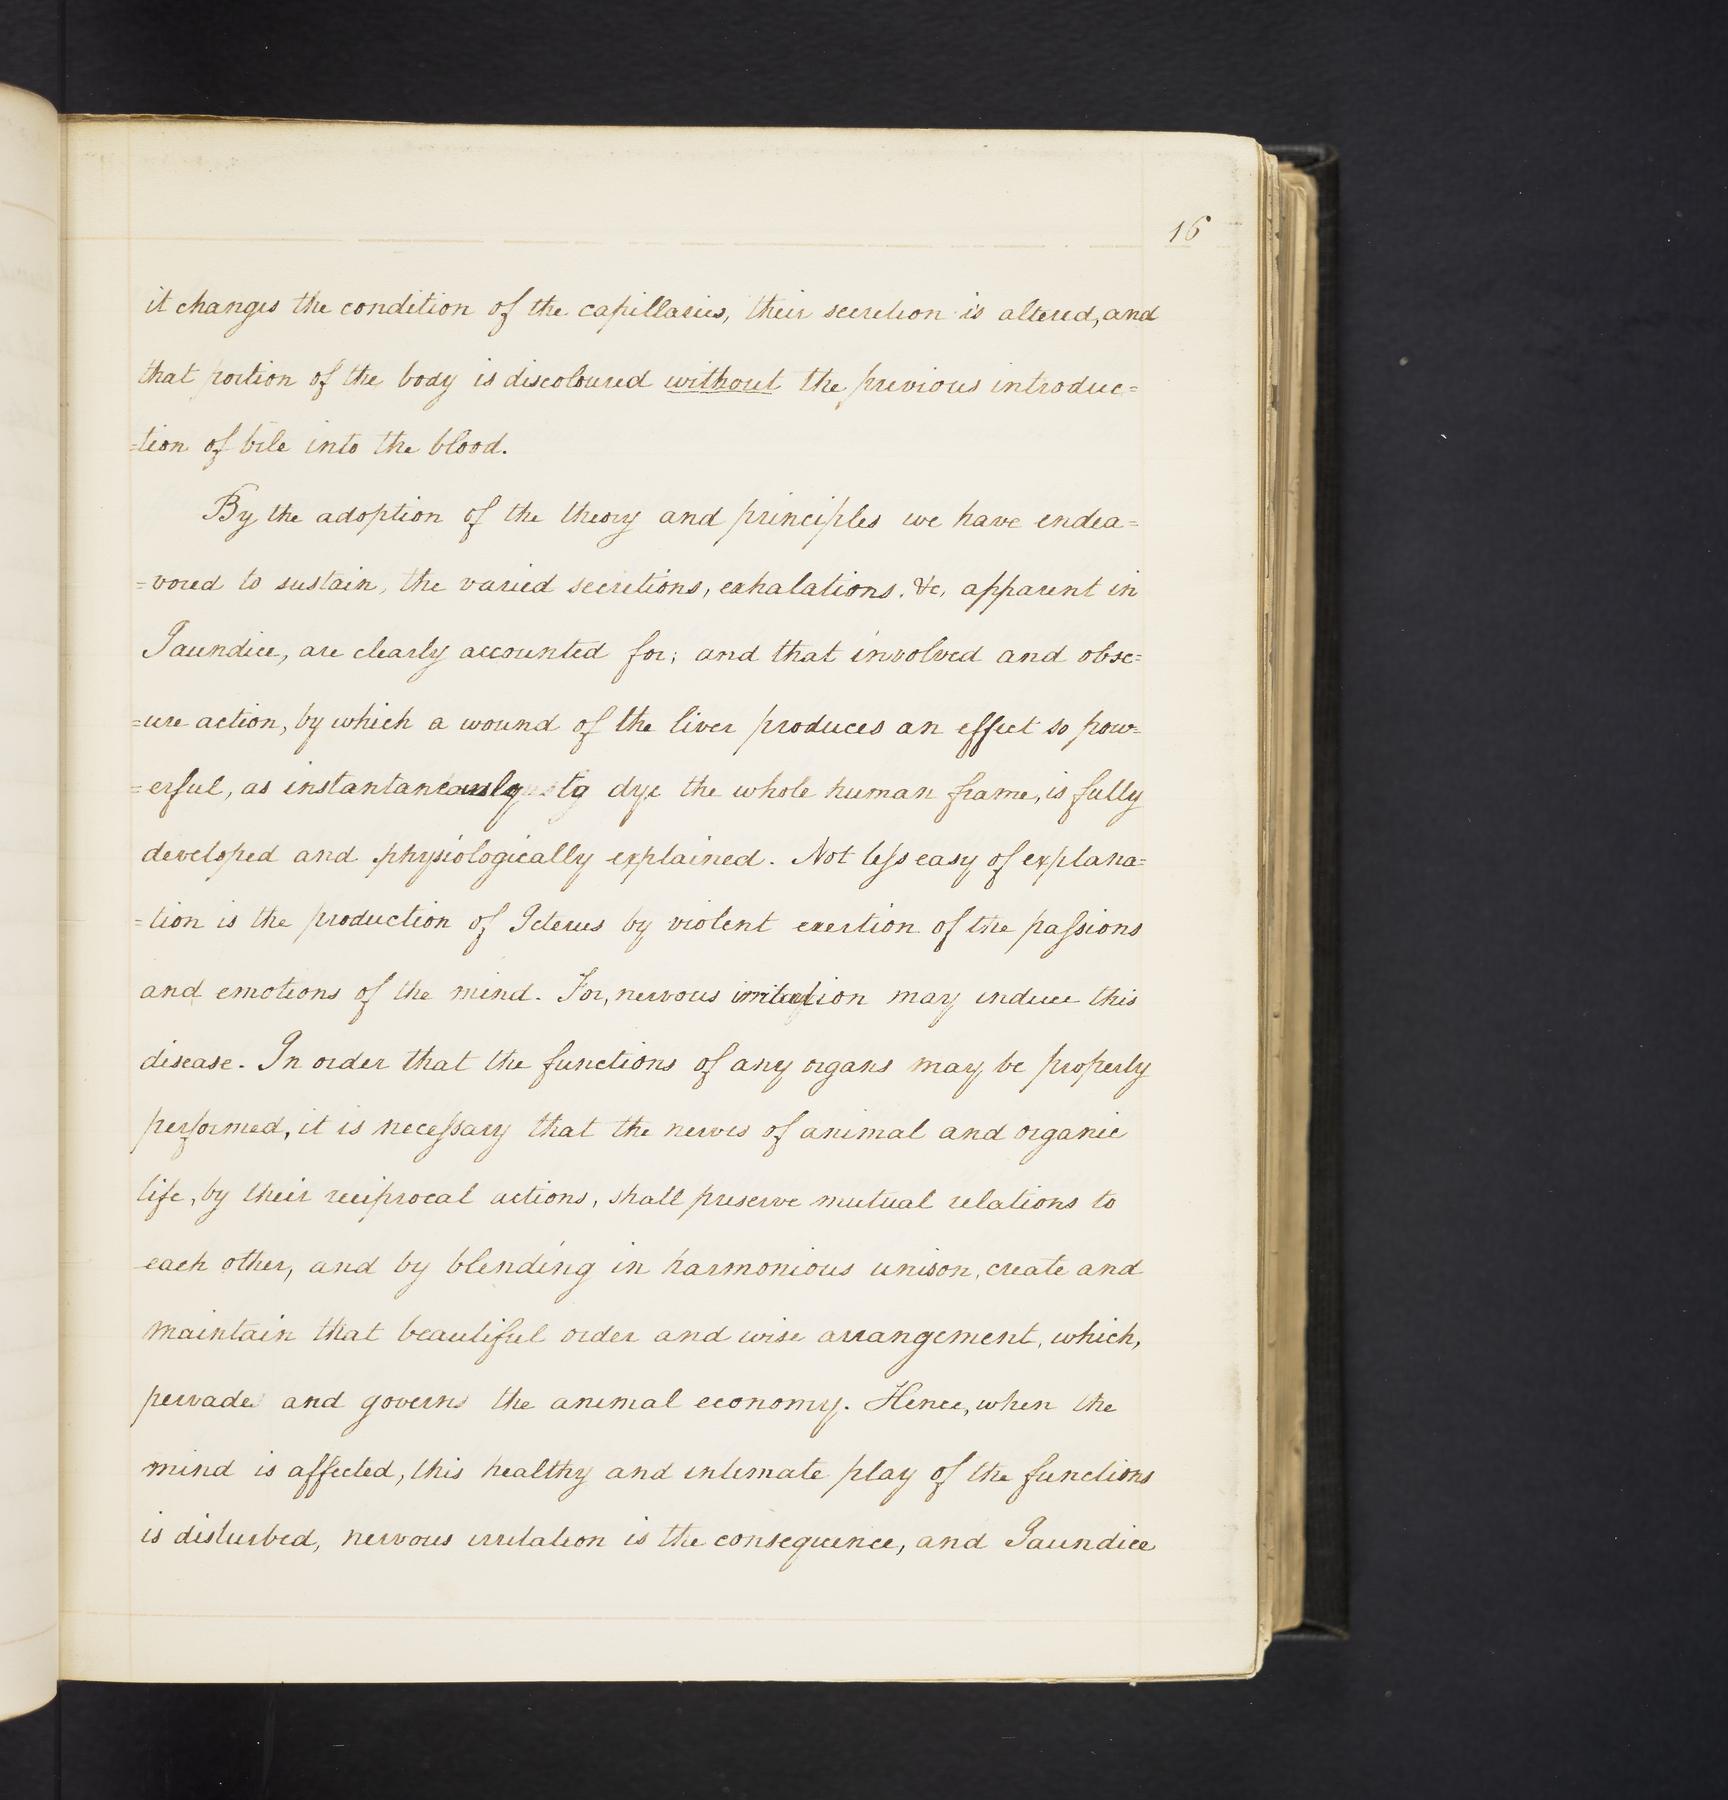 16
it changes the condition of the capillaries, their secretion is altered, and
that portion of the body is discoloured without the previous introduc=
=tion of bile into the blood.
By the adoption of the theory and principles we have endea=
=vored to sustain, the varied secretions, exhalations. &c, apparent in
Jaundice, are clearly accounted for; and that involved and obsc=
=ure action, by which a wound of the liver produces an effect so pow=
=erful, as instantaneously to dye the whole human frame, is fully
developed and physiologically explained. Not less easy of explana=
=tion is the production of Icterus by violent exertion of the passions
and emotions of the mind. For, nervous irritation may induce this
disease. In order that the functions of any organs may be properly
performed, it is necessary that the nerves of animal and organic
life, by their reciprocal actions, shall preserve mutual relations to
each other, and by blending in harmonious unison, create and
maintain that beautiful order and wise arrangement, which,
pervades and governs the animal economy. Hence, when the
mind is affected, this healthy and intimate play of the functions
is disturbed, nervous irritation is the consequence, and Jaundice